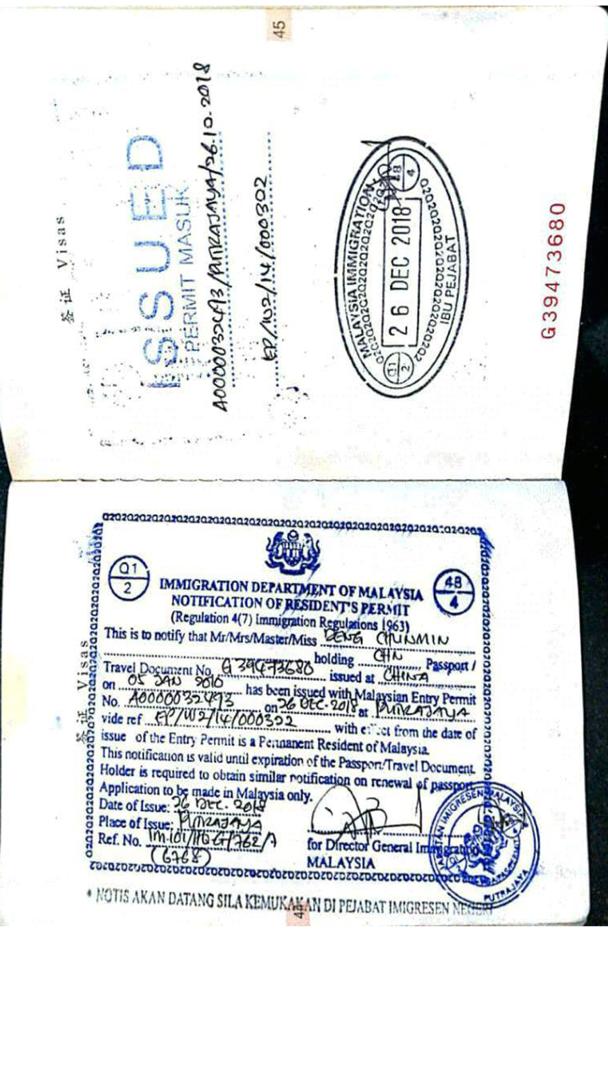 45
签证 Visas
ISSUED
PERMIT MASUK
A0000032493/PUTRAJAYA/26.10.2018
EP/W2/14/000302
MALAYSIA IMMIGRATION
Q1
2
26 DEC 2018
4B
4
IBU PEJABAT
G39473680
签证 Visas
Q1
2
4B
4
IMMIGRATION DEPARTMENT OF MALAYSIA
NOTIFICATION OF RESIDENT'S PERMIT
(Regulation 4(7) Immigration Regulations 1963)
This is to notify that Mr/Mrs/Master/Miss DENG CHUNMIN
holding CHN Passport /
Travel Document No. G39473680 issued at CHINA
on 05 JAN 2010 has been issued with Malaysian Entry Permit
No. A0000032493 on 26 DEC. 2018 at PUTRAJAYA
vide ref EP/W2/14/000302 with effect from the date of
issue of the Entry Permit is a Permanent Resident of Malaysia.
This notification is valid until expiration of the Passport/Travel Document.
Holder is required to obtain similar notification on renewal of passport.
Application to be made in Malaysia only.
Date of Issue: 26 DEC. 2018
Place of Issue: PUTRAJAYA
Ref. No. IM.101/HQ-G/762/7
(6768)
for Director General Immigration
MALAYSIA
JABATAN IMIGRESEN MALAYSIA
PUTRAJAYA
* NOTIS AKAN DATANG SILA KEMUKAKAN DI PEJABAT IMIGRESEN NEGERI